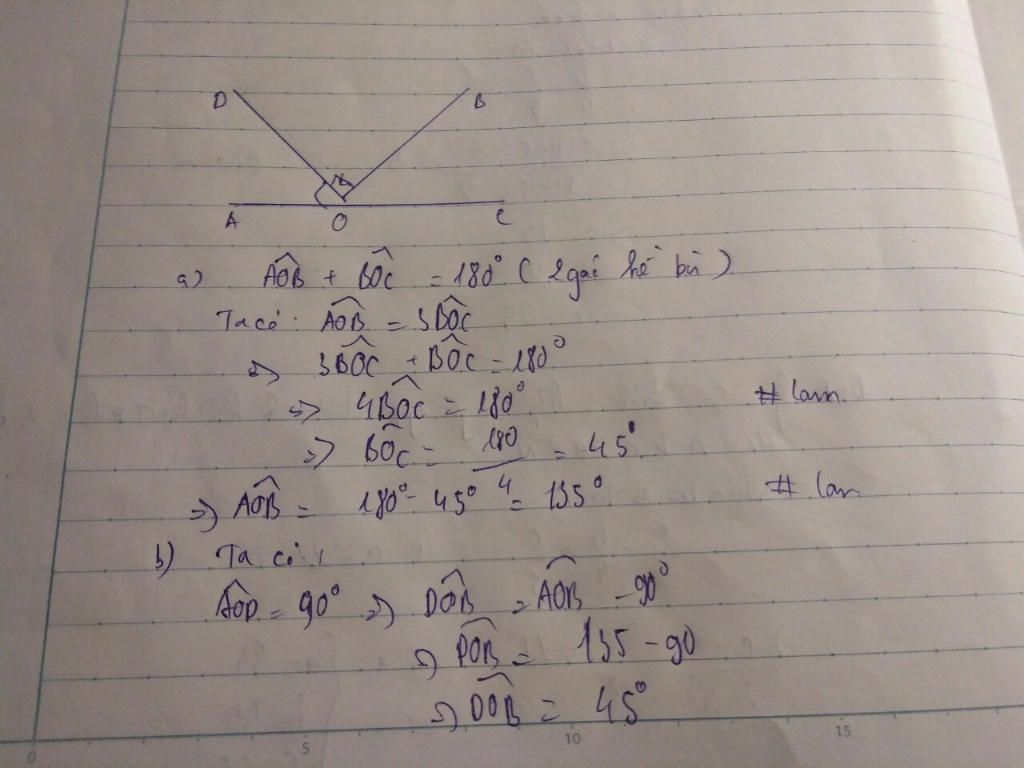 D B
A O C
a) AÔB + BÔC = 180° (2 góc kề bù)
Ta có: AÔB = 3BÔC
=> 3BÔC + BÔC = 180°
=> 4BÔC = 180° # lam
=> BÔC = 180/4 = 45°
=> AÔB = 180° - 45° = 135° # lam
b) Ta có:
AÔD = 90° => DÔB = AÔB - 90°
=> DÔB = 135 - 90
=> DÔB = 45°
0 5 10 15